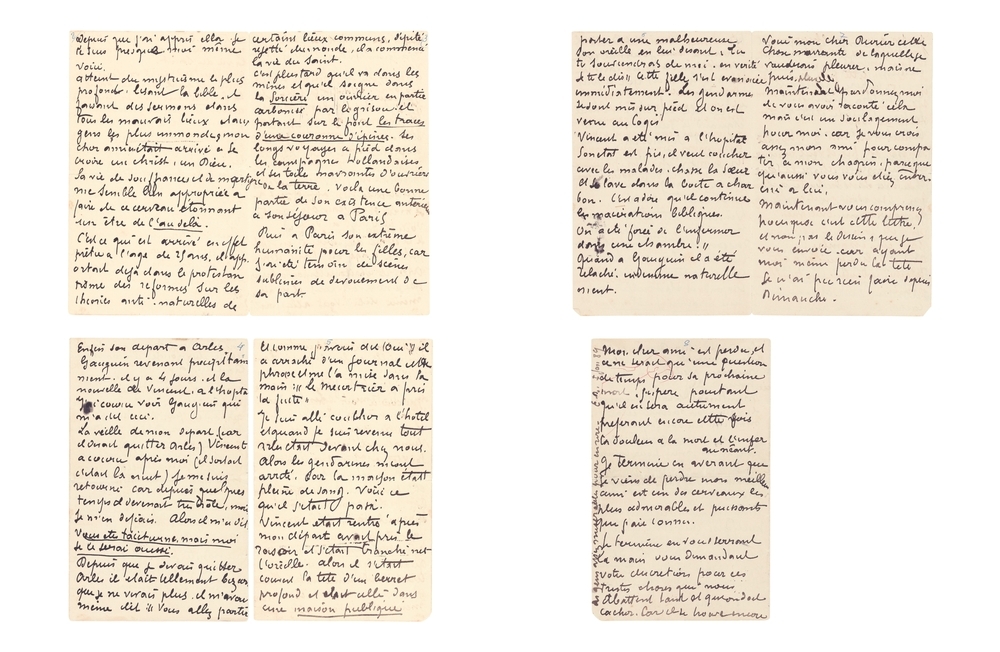 Depuis que j'ai appris cela je
suis presque moi même
voici.
atteint du mysticisme le plus
profond lisant la bible, et
faisant des sermons dans
tous les mauvais lieux etaux
gens les plus immondes, mon
cher ami etait arrivé a se
croire un Christ, un Dieu.
La vie de souffrance et de martyre
me semble bien appropriée a
faire de ce cerveau étonnant
un être de l'au delà.
C'est ce qui est arrivé en effet
prêtre a l'age de ans, il app
ortait dejà dans le protestan
tisme des reformes sur les
theories anti-naturelles de
certains lieux communs,
rejetté du monde, il a commencé
la vie de Saint.
C'est plus tard qu'il va dans les
mines et qu'il soigne dans
la Sorcière un ouvrier en partie
carbonisé par le grisou et
portant sur le front les traces
d'une couronne d'épines. Ses
longs voyages a pied dans
les campagnes Hollandaises
et sa toile navrante d'ouvriers
de la terre. Voila une bonne
partie de son existence anterieure
a son séjour a Paris
Puis a Paris son extrême
humanité pour les filles, car
j'ai été témoin de scènes
sublimes de dévouement de
sa part.
Enfin son départ a Arles 4
Gauguin revenant precipitam
ment. il y a 4 jours. et la
nouvelle de Vincent, a l'hopital
J'ai couru voir Gauguin qui
m'a dit ceci.
La veille de mon départ (car
il devait quitter Arles) Vincent
a couru après moi (il sortait
c'était la nuit) je me suis
retourné car depuis quelques
temps il devenait très drôle, mais
je m'en défiais. Alors il m'a dit
Vous etes taciturne, mais moi
je le serai aussi.
Depuis que je devais quitter
Arles il était tellement bizarre
que je ne vivais plus. il m'avait
même dit !! Vous allez partir
Et comme j'avais dit (Oui!) il
a arraché d'un journal cette
phrase et me l'a mise dans la
main !!! le meurtrier a pris
la fuite "
Je suis allé coucher a l'hotel
et quand je suis revenu tout
Arles était devant chez nous.
Alors les gendarmes m'ont
arrêté, car la maison était
pleine de sang. Voici ce
qui s'était passé.
Vincent etait rentré après
mon départ avait pris le
rasoir et s'était tranché net
l'oreille. alors il s'était
couvert la tête d'un berret
profond et etait allé dans
une maison publique
porter a une malheureuse
son oreille en lui disant, Tu
te souviendras de moi, en vérité
je te le dis !! Cette fille s'est évanouie
immédiatement. Les gendarmes
se sont mis sur pied et on est
venu au Logis
Vincent a été mis a l'hopital
Son état est pis, il veut coucher
avec les malades, chasse la sœur
et se lave dans la boite a char
bon. C'est adire qu'il continue
les macérations bibliques.
On a été forcé de l'enfermer
dans une chambre !!
Quand a Gauguin il a été
relaché. indemne naturelle
ment.
Voici mon cher Aurier cette
chose navrante de laquelle je
voudrais pleurer, mais ne
puis.
Maintenant pardonnez moi
de vous avoir raconté cela
mais c'est un soulagement
pour moi. car je vous crois
assez mon ami pour compa
tir à mon chagrin, parce que
qu'aussi vous vous étiez inter-
essé a lui.
Maintenant vous comprenez
pourquoi c'est cette lettre,
et non pas le Dessin, que je
vous envoie. car ayant
moi même perdu la tête
je n'ai pu rien faire depuis
Dimanche.
Mon cher ami est perdu, et
ce ne serait qu'une question
de temps, pour sa prochaine
mort. j'espère pourtant
qu'il en sera autrement
préférant encore cette fois
la douleur a la mort et l'enfer
au néant.
Je termine en avérant que
je viens de perdre mon meilleur
ami est un des cerveaux les
plus admirable et puissants
que j'aie connu.
Je termine en vous serrant
la main vous demandant
votre discrétion pour ces
tristes choses que nous
abattent tant et qu'on doit
cacher. Car il se trouve encore